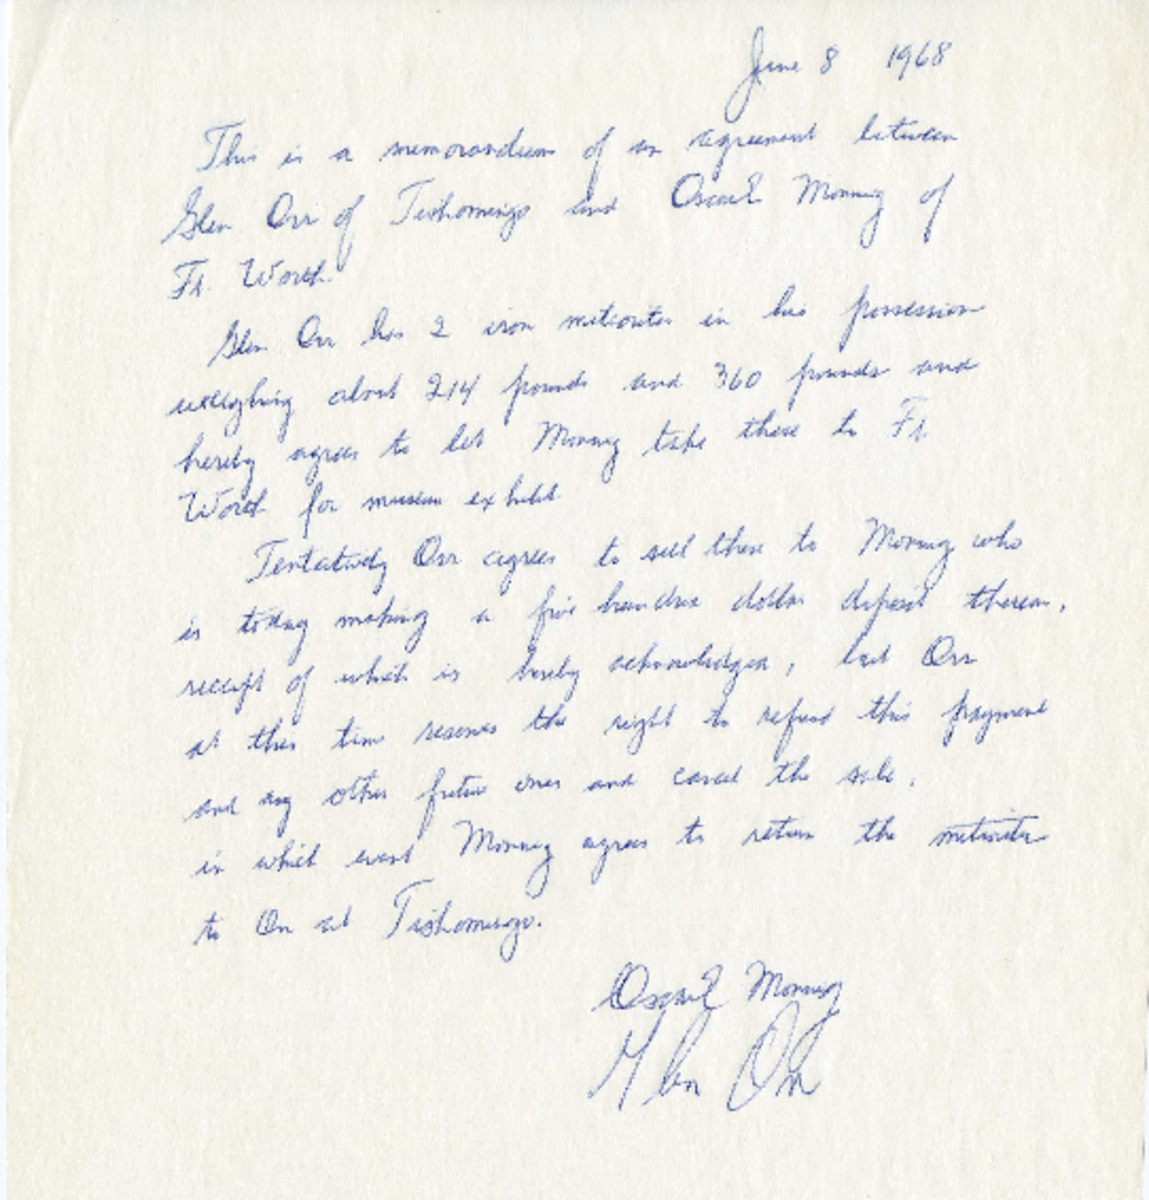 June 8 1968
This is a memorandum of an agreement between
Glen Orr of Tishomingo and Oscar E Monnig of
Ft. Worth.
Glen Orr has 2 iron meteorites in his possession
weighing about 214 pounds and 360 pounds and
hereby agrees to let Monnig take these to Ft
Worth for museum exhibit
Tentatively Orr agrees to sell these to Monnig who
is today making a five hundred dollar deposit thereon,
receipt of which is hereby acknowledged, but Orr
at this time reserves the right to refund this payment
and any other future ones and cancel the sale,
in which event Monnig agrees to return the meteorites
to Orr at Tishomingo.
Oscar E Monnig
Glen Orr